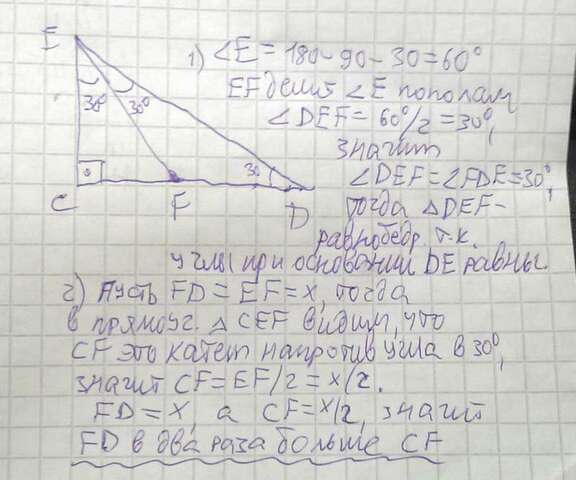 E
1) ∠E = 180 - 90 - 30 = 60°
EF делит ∠E пополам
∠DEF = 60°/2 = 30°,
значит
∠DEF = ∠FDE = 30°,
тогда △DEF -
равнобедр. т.к.
углы при основании DE равны.
30° 30°
30
C F D
2) Пусть FD = EF = x, тогда
в прямоуг. △CEF видим, что
CF это катет напротив угла в 30°,
значит CF = EF/2 = x/2.
FD = x, а CF = x/2, значит
FD в два раза больше CF